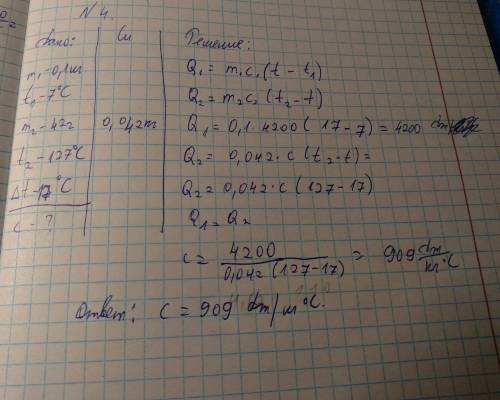 N 4.
Дано:
m₁-0,1кг
t₁-7°C
m₂-42г
t₂-127°C
Δt-17°C
c - ?
Си
0,042кг
Решение:
Q₁ = m₁c₁(t - t₁)
Q₂ = m₂c₂(t₂-t)
Q₁ = 0,1·4200(17-7) = 4200 dm
Q₂ = 0,042·c(t₂-t) =
Q₂ = 0,042·c(127-17)
Q₁ = Q₂
c = 4200 / 0,042(127-17) = 909 dm/кг°C
Ответ: c = 909 dm/кг°C.